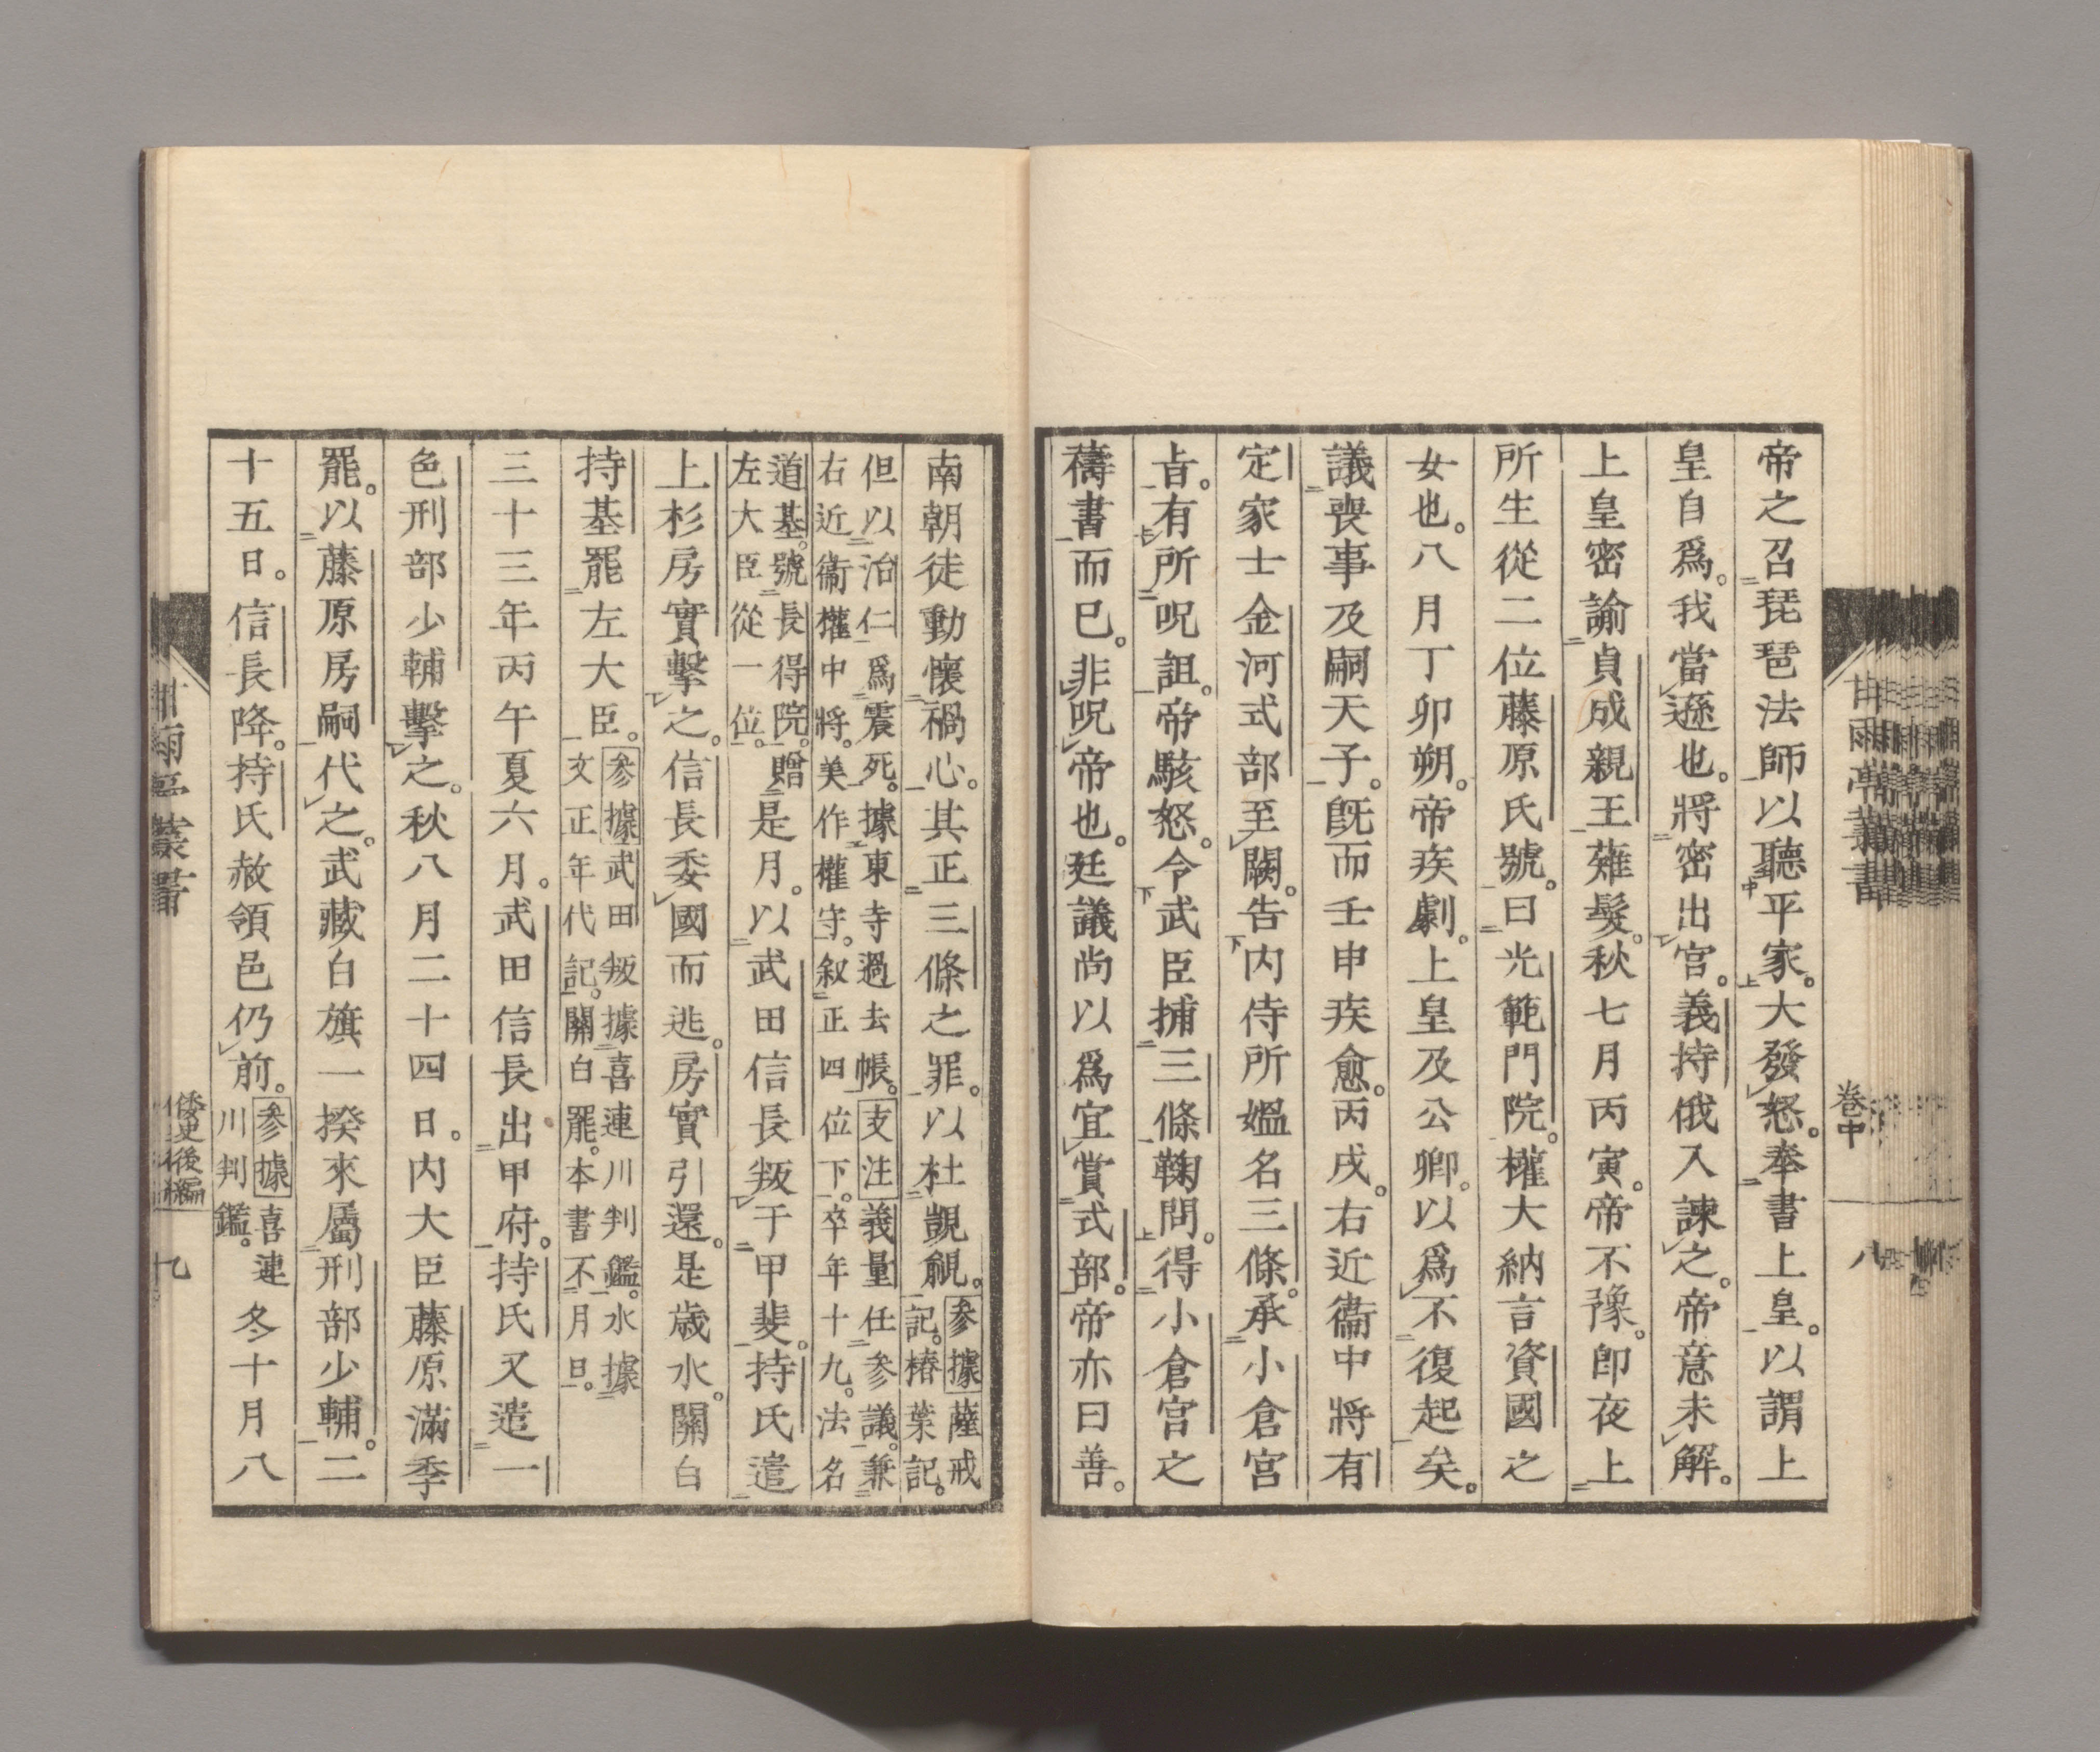 帝之召琵琶法師以聽平家。大發怒。奉書上皇。以謂上
皇自爲。我當遜也。將密出宮。義持俄入諫之。帝意未解。
上皇密諭貞成親王薙髮。秋七月丙寅。帝不豫。卽夜上
所生從二位藤原氏號。曰光範門院。權大納言資國之
女也。八月丁卯朔。帝疾劇。上皇及公卿。以爲不復起矣。
議喪事及嗣天子。旣而壬申疾愈。丙戌。右近衞中將有
定家士金河式部至闕。告内侍所媼名三條。承小倉宮
旨。有所呪詛。帝駭怒。令武臣捕三條鞠問。得小倉宮之
禱書而已。非呪帝也。廷議尚以爲宜賞式部。帝亦曰善。
甘雨亭叢書
卷中
八
南朝徒動懷禍心。其正三條之罪。以杜覬覦。參據薩戒
記。椿葉記。
但以治仁爲震死。據東寺過去帳。支注義量任參議。兼
右近衞權中將。美作權守。叙正四位下。卒年十九。法名
道基。號長得院。贈
左大臣從一位。
是月。以武田信長叛于甲斐。持氏遣
上杉房實擊之。信長委國而逃。房實引還。是歲水。關白
持基罷左大臣。
參據武田叛據喜連川判鑑。水據
文正年代記。關白罷。本書不月日。
三十三年丙午夏六月。武田信長出甲府。持氏又遣一
色刑部少輔擊之。秋八月二十四日。内大臣藤原滿季
罷。以藤原房嗣代之。武藏白旗一揆來屬刑部少輔。二
十五日。信長降。持氏赦領邑仍前。
參據喜連
川判鑑。
冬十月八
甘雨亭叢書
倭史後編
九